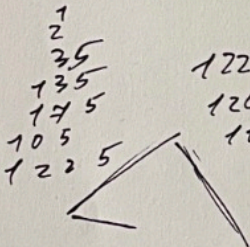 1
2
35
135
175
105
1225
122
120